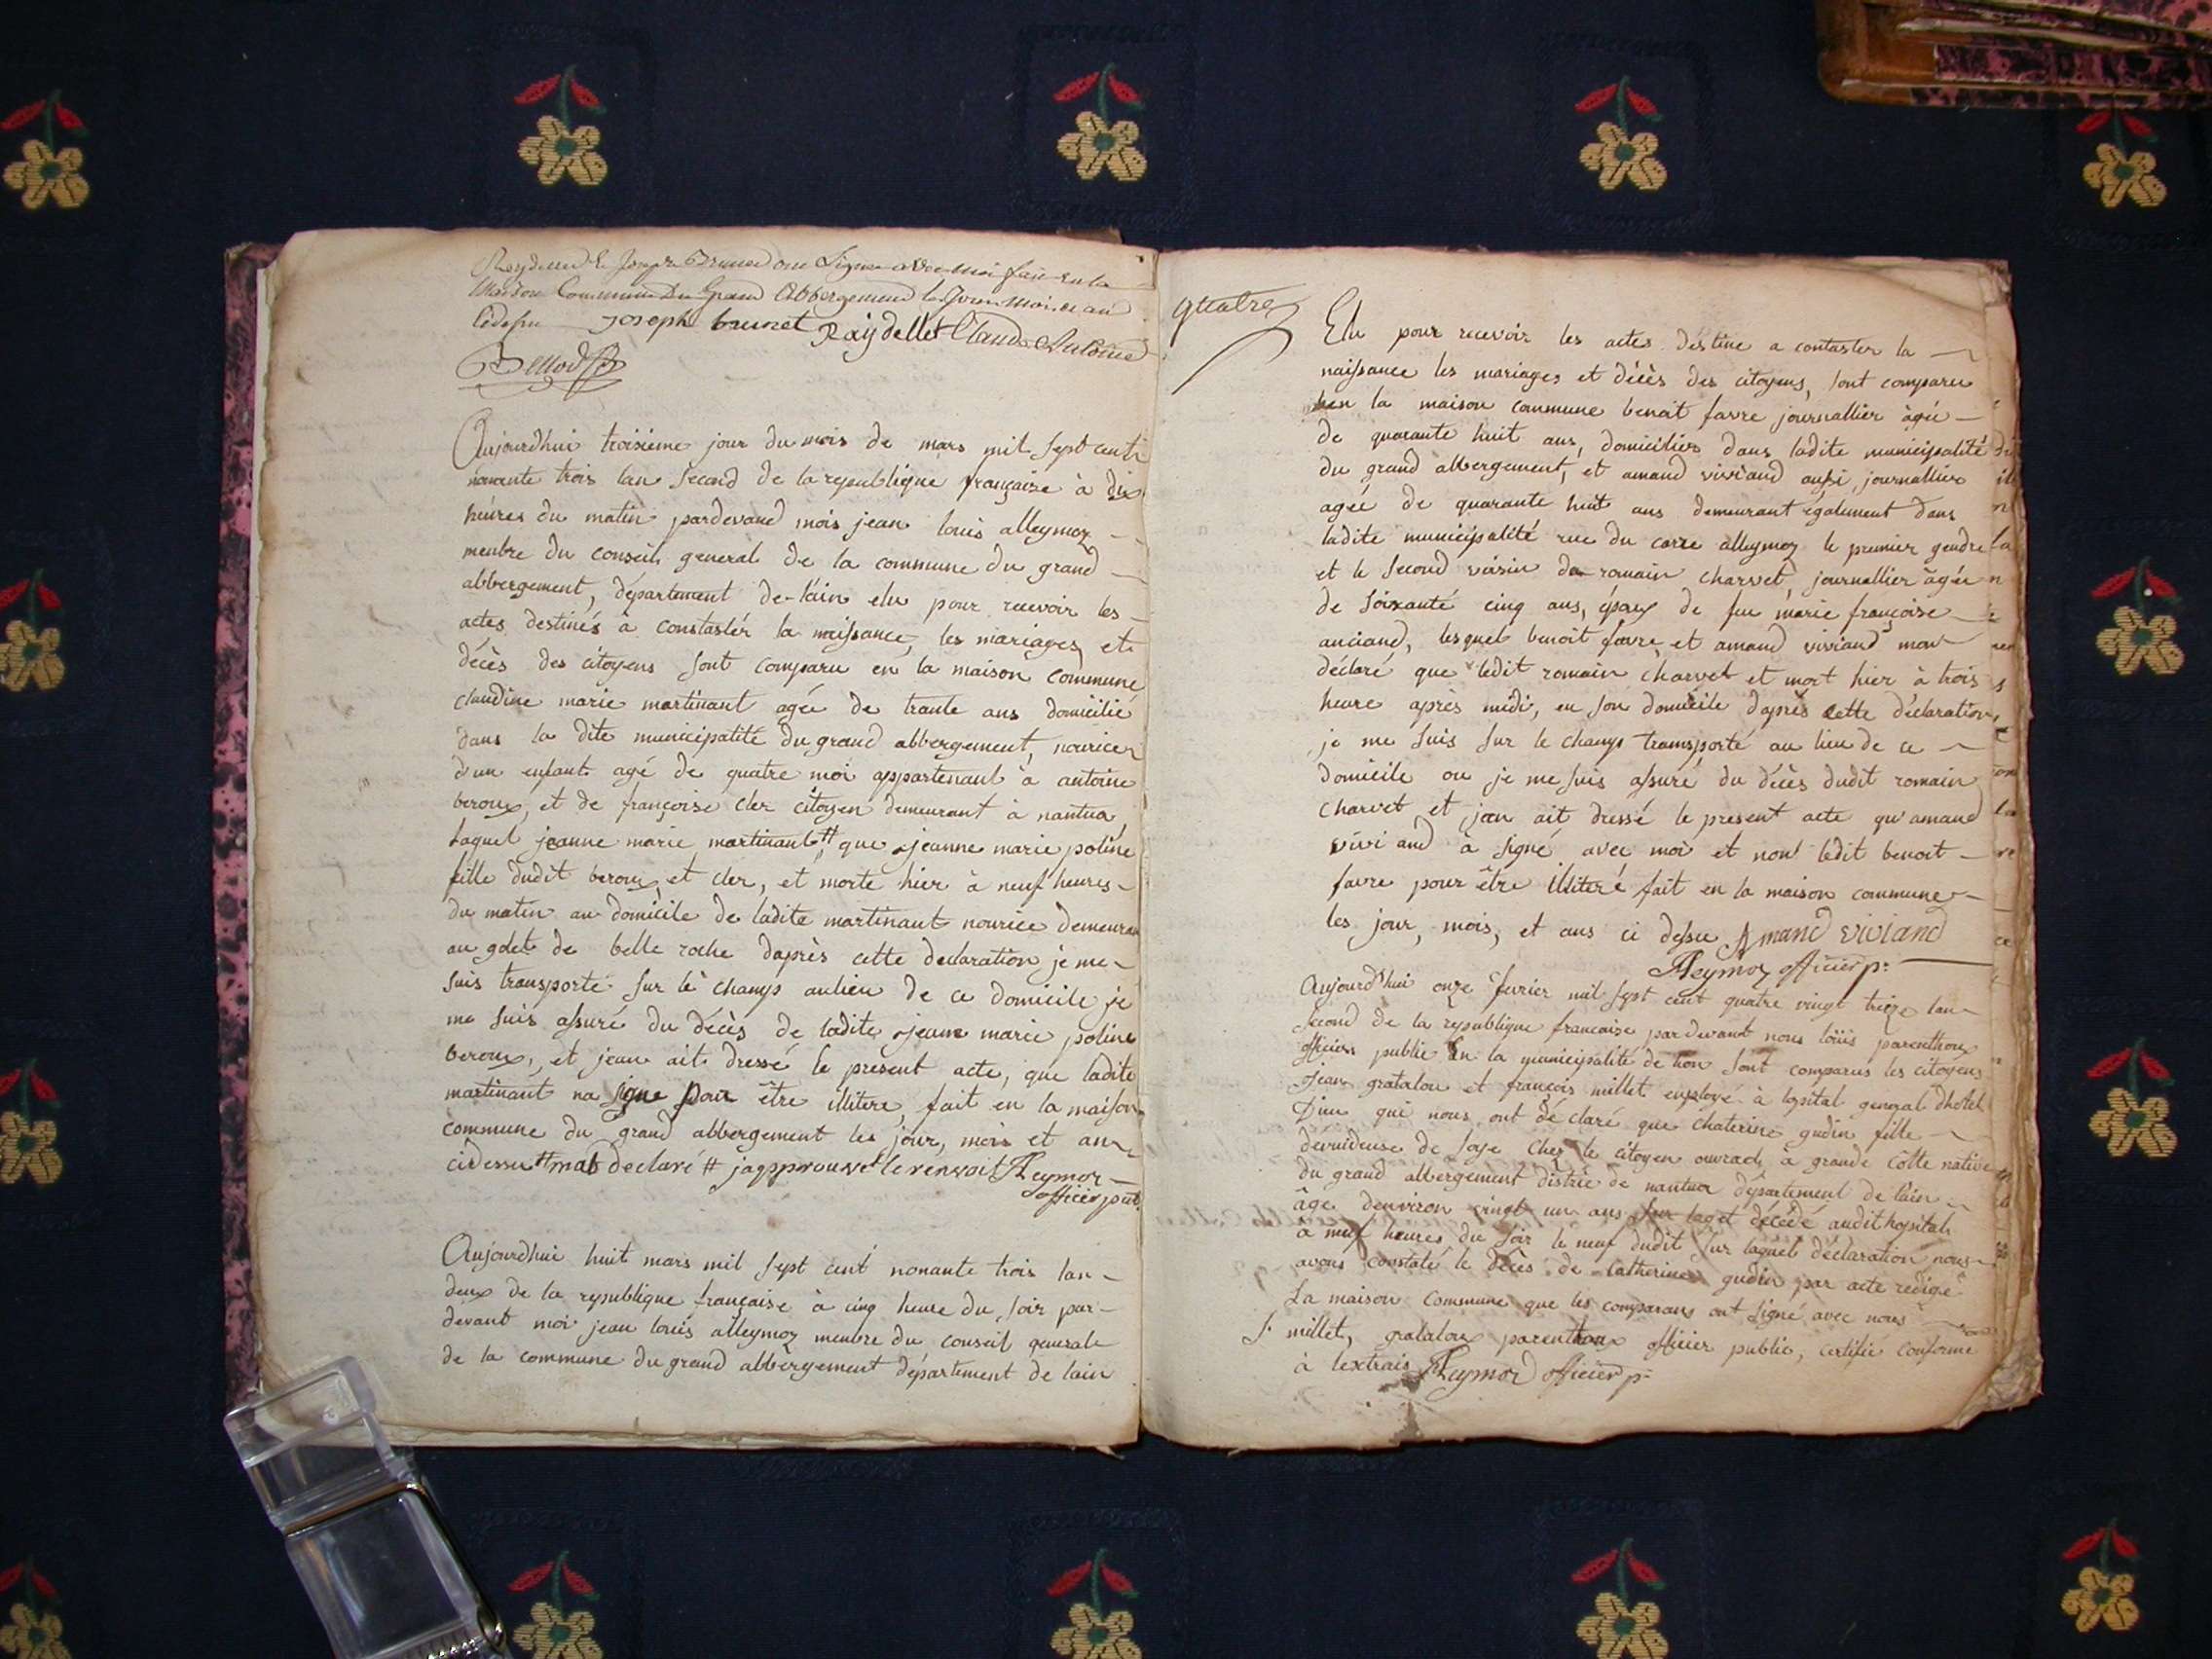 Raydellet & Joseph Brunet ont Signé avec moi fait en la
Maison Commune du Grand Abbergement les Jour mois et an
ci dessu joseph brunet Raydellet Claude Antoine
Aujourdhui troisième jour du mois de mars mil Sept cent
nonante trois lan Second de la republique française à dix
héures du matin pardevand mois jean louis alleymoz
menbre du conseil general de la commune du grand
abbergement, département de lain elu pour recevoir les
actes destinés à constastér la naissance, les mariages, et
décès des citoyens Sont comparu en la maison commune
claudine marie martinant agée de trante ans domicilié
dans la dite municipalité du grand abbergement, nourice
d'un enfant agé de quatre moi appartenant à antoine
beroux, et de françoise cler citoyen demeurant à nantua
laquel jeanne marie martinant # que jeanne marie poline
fille dudit beroux, et cler, et morte hier à neuf heures
du matin au domicile de ladite martinant nourice demeuran
au golet de belle roche daprès cette declaration je me
suis transporté Sur lè champs aulieu de ce domicile je
me Suis assuré du décès de ladite jeanne marie poline
beroux, et jean ait dressé le présent acte, que ladite
martinant na signe pour être illitere, fait en la maison
commune du grand abbergement les jour, mois et an
cidessu # mat declaré # japprouve le renvoit Alleymoz
officier pub.
Aujourdhui huit mars mil Sept cent nonante trois lan
deux de la republique française à cinq heure du soir par
devant moi jean louis alleymoz menbre du conseil general
de la commune du grand abbergement département de lain
quatre
Elu pour recevoir les actes destine a contaster la
naissance les mariages et décès des citoyens, Sont comparu
en la maison commune benoit favre journallier àgée
de quarante huit ans, domicilier dans ladite municipalité
du grand abbergement, et amand viviand aussi journallier
agée de quarante huit ans demeurant également dans
ladite municipalité rue du carre alleymoz le premier gendre
et le Second voisin de romain charvet, journallier àgée
de Soixanté cinq ans, époux de feu marie françoise
anciand, lesquel benoit favre, et amand viviand mon
déclaré que ledit romain charvet et mort hier à trois
heure après midi, en son domicile daprès cette déclaration
je me Suis Sur le champs transporté au lieu de ce
domicile ou je me Suis assuré du décès dudit romain
charvet et jean ait dressé le present acte qu'amand
viviand à signé avec moi et non ledit benoit
favre pour être illiteré fait en la maison commune
les jour, mois, et ans ci dessu Amand viviand
Alleymoz officier p.
Aujourd'hui onze fevrier mil sept cent quatre vingt treize lan
Second de la republique francaise pardevant nous loüis parenthoux
officier public en la municipalité de lion Sont comparus les citoyens
Jean gratalou et françois millet employé à lopital general dhotel
Dieu qui nous ont déclaré que chaterine gudin fille
dévuideuse de Soye chez le citoyen ouvrad, à grande Cotte native
du grand abbergement distric de nantua département de lain
âge denviron vingt un ans décédé audit hopital
à neuf heures du soir le neuf dudit Sur laquel déclaration nous
avons constaté le décès de catherine gudin par acte redigé
La maison commune que les comparans ont signé avec nous
f. millet, gratalou, parenthoux officier public, certifié conforme
à lextrais Alleymoz officier p.